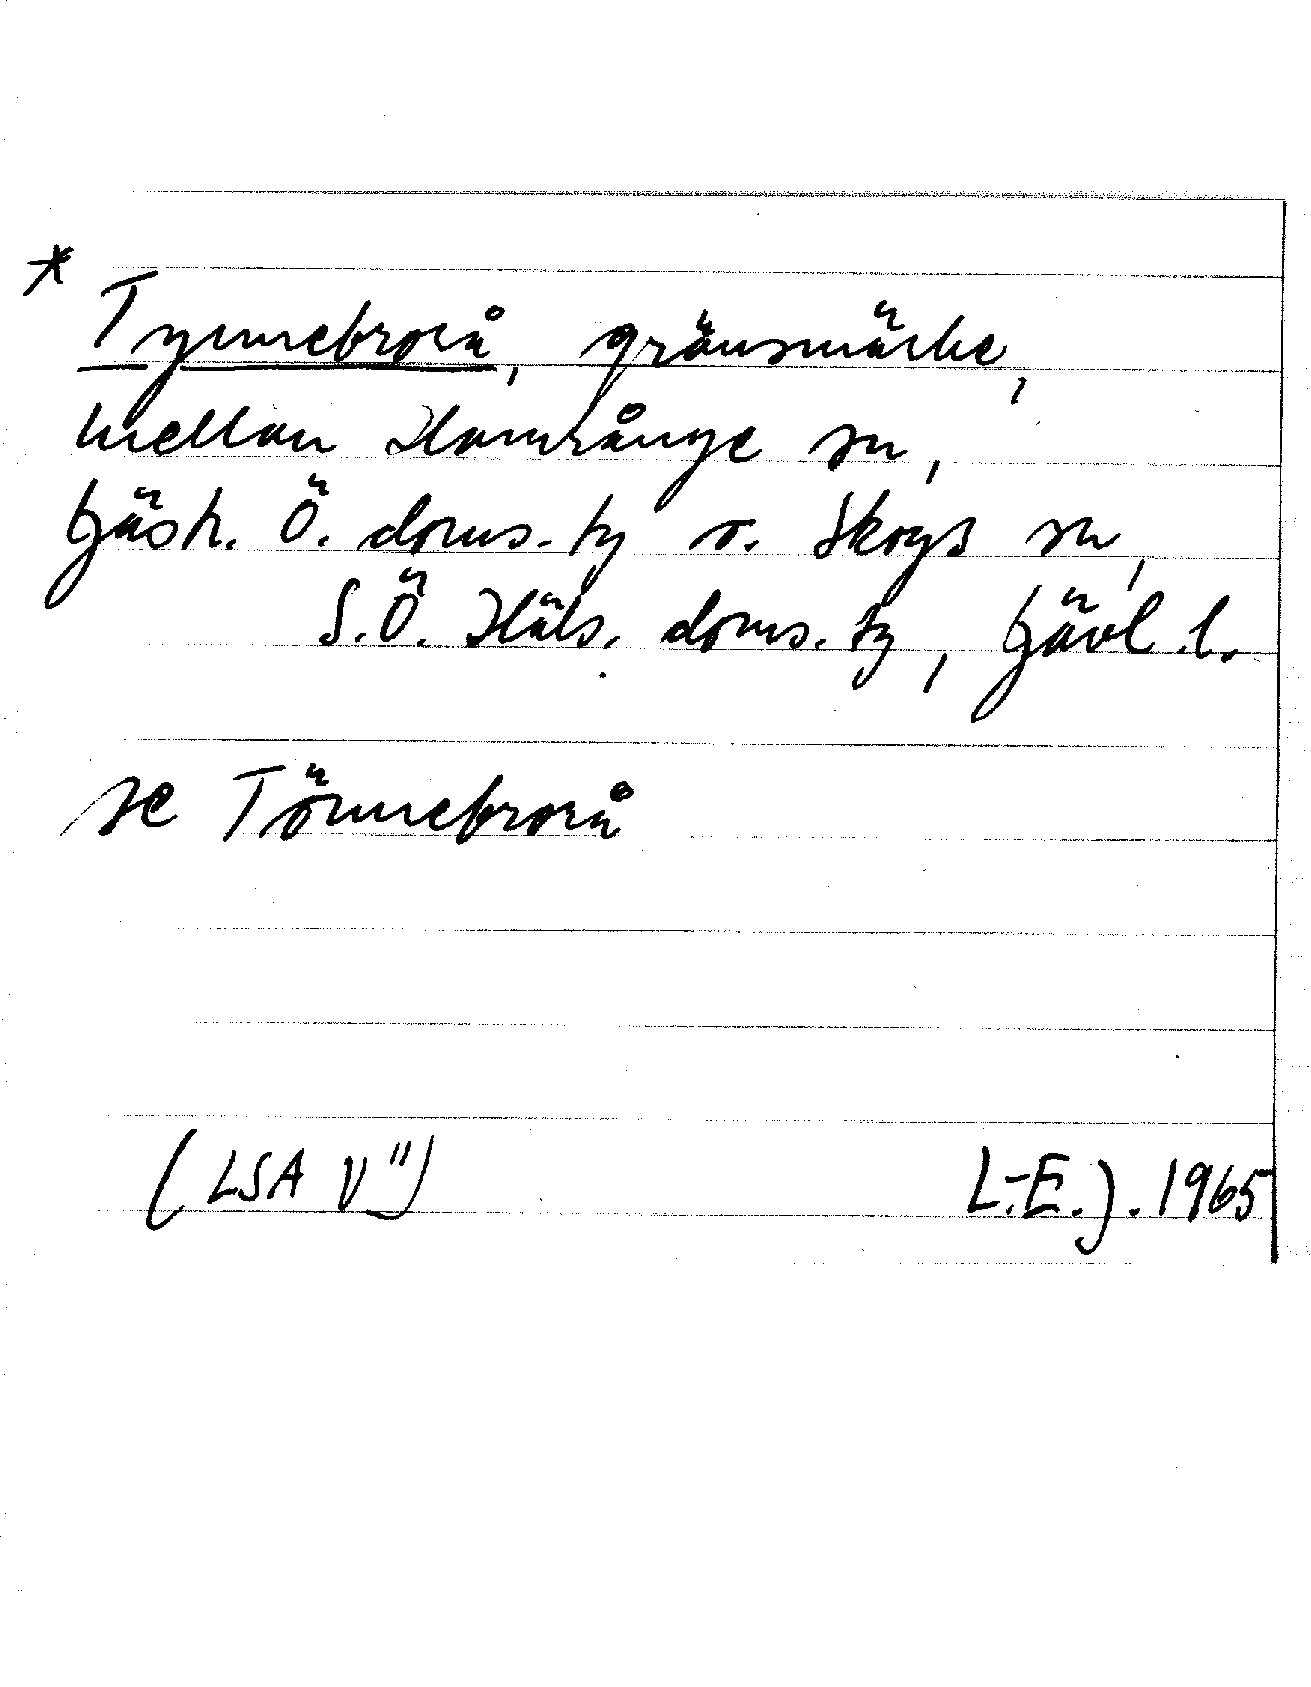 * Tynnebrorå, gränsmärke,
mellan Hamrånge sn,
Gästr. Ö. doms.-tg o. Skogs sn,
S.Ö. Häls. doms. tg, Gävl. l.
se Tönnebrorå
(LSA V")
L.-E.J. 1965